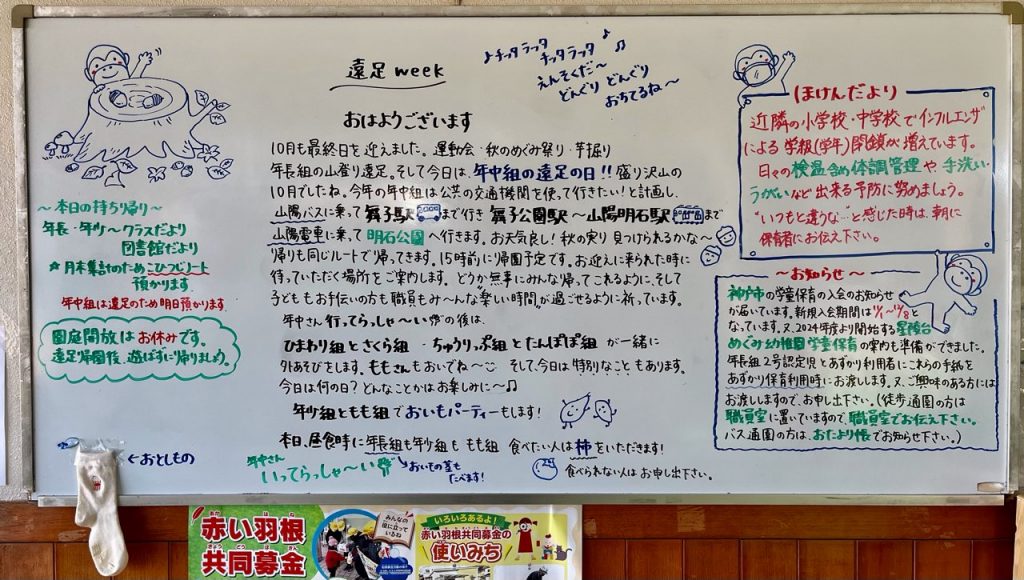 遠足week
♪チッタラッタ
チッタラッタ♪♫
えんそくだ〜
どんぐり どんぐり
おちてるね〜
おはようございます
10月も最終日を迎えました。運動会・秋のめぐみ祭り・芋掘り
年長組の山登り遠足。そして今日は、年中組の遠足の日!!盛り沢山の
10月でしたね。今年の年中組は公共の交通機関を使って行きたい!と計画し、
山陽バスに乗って 舞子駅まで行き 舞子公園駅〜山陽明石駅まで
山陽電車に乗って 明石公園へ行きます。お天気良し!秋の実り 見つけられるかな〜
帰りも同じルートで帰ってきます。15時前に帰園予定です。お迎えに来られた時に
待っていただく場所をご案内します。どうか無事にみんな帰ってこれるように、そして
子どももお伝いの方も職員もみ〜んな"楽しい時間"が過ごせるように祈っています。
年中さん行ってらっしゃ〜い の後は、
ひまわり組とさくら組 ・ちゅうりっぷ組とたんぽぽ組 が一緒に
外あそびをします。ももさんもおいでね〜 そして、今日は特別なこともあります。
今日は何の日?どんなことかはお楽しみに〜♫
年少組ともも組でおいもパーティーもします!
本日、昼食時に年長組も年少組も もも組 食べたい人は柿をいただきます!
食べられない人はお申し出下さい。
年中さん
いってらっしゃ〜い
おいもの茎も
たべます!
〜本日の持ち帰り〜
年長・年少〜クラスだより
図書館だより
★月末集計のためこひつじノート
預かります。
年中組は遠足のため明日預かります。
園庭開放はお休みです。
遠足帰園後、遊ばずに帰りましょう。
←おとしもの
ほけんだより
近隣の小学校・中学校でインフルエンザ
による 学級(学年)閉鎖が増えています。
日々の検温含め体調管理や手洗い
うがいなど出来る予防に努めましょう。
"いつもと違うな…"と感じた時は、朝に
保育者にお伝え下さい。
〜お知らせ〜
神戸市の学童保育の入会のお知らせ
が届いています。新規入会期間は
となっています。又、2024年度より開始する星陵台
めぐみ幼稚園学童保育の案内も準備ができました。
年長組2号認定児とあずかり利用者にこれらの手紙を
あずかり保育利用時にお渡しします。又、ご興味のある方には
お渡ししますので、お申し出下さい。(徒歩通園の方は
職員室に置いていますので、職員室でお伝え下さい。
バス通園の方は、おたより帳でお知らせ下さい。)
赤い羽根
共同募金
みんなの
役に立って
いるね
いろいろあるよ!
赤い羽根共同募金の
使いみち